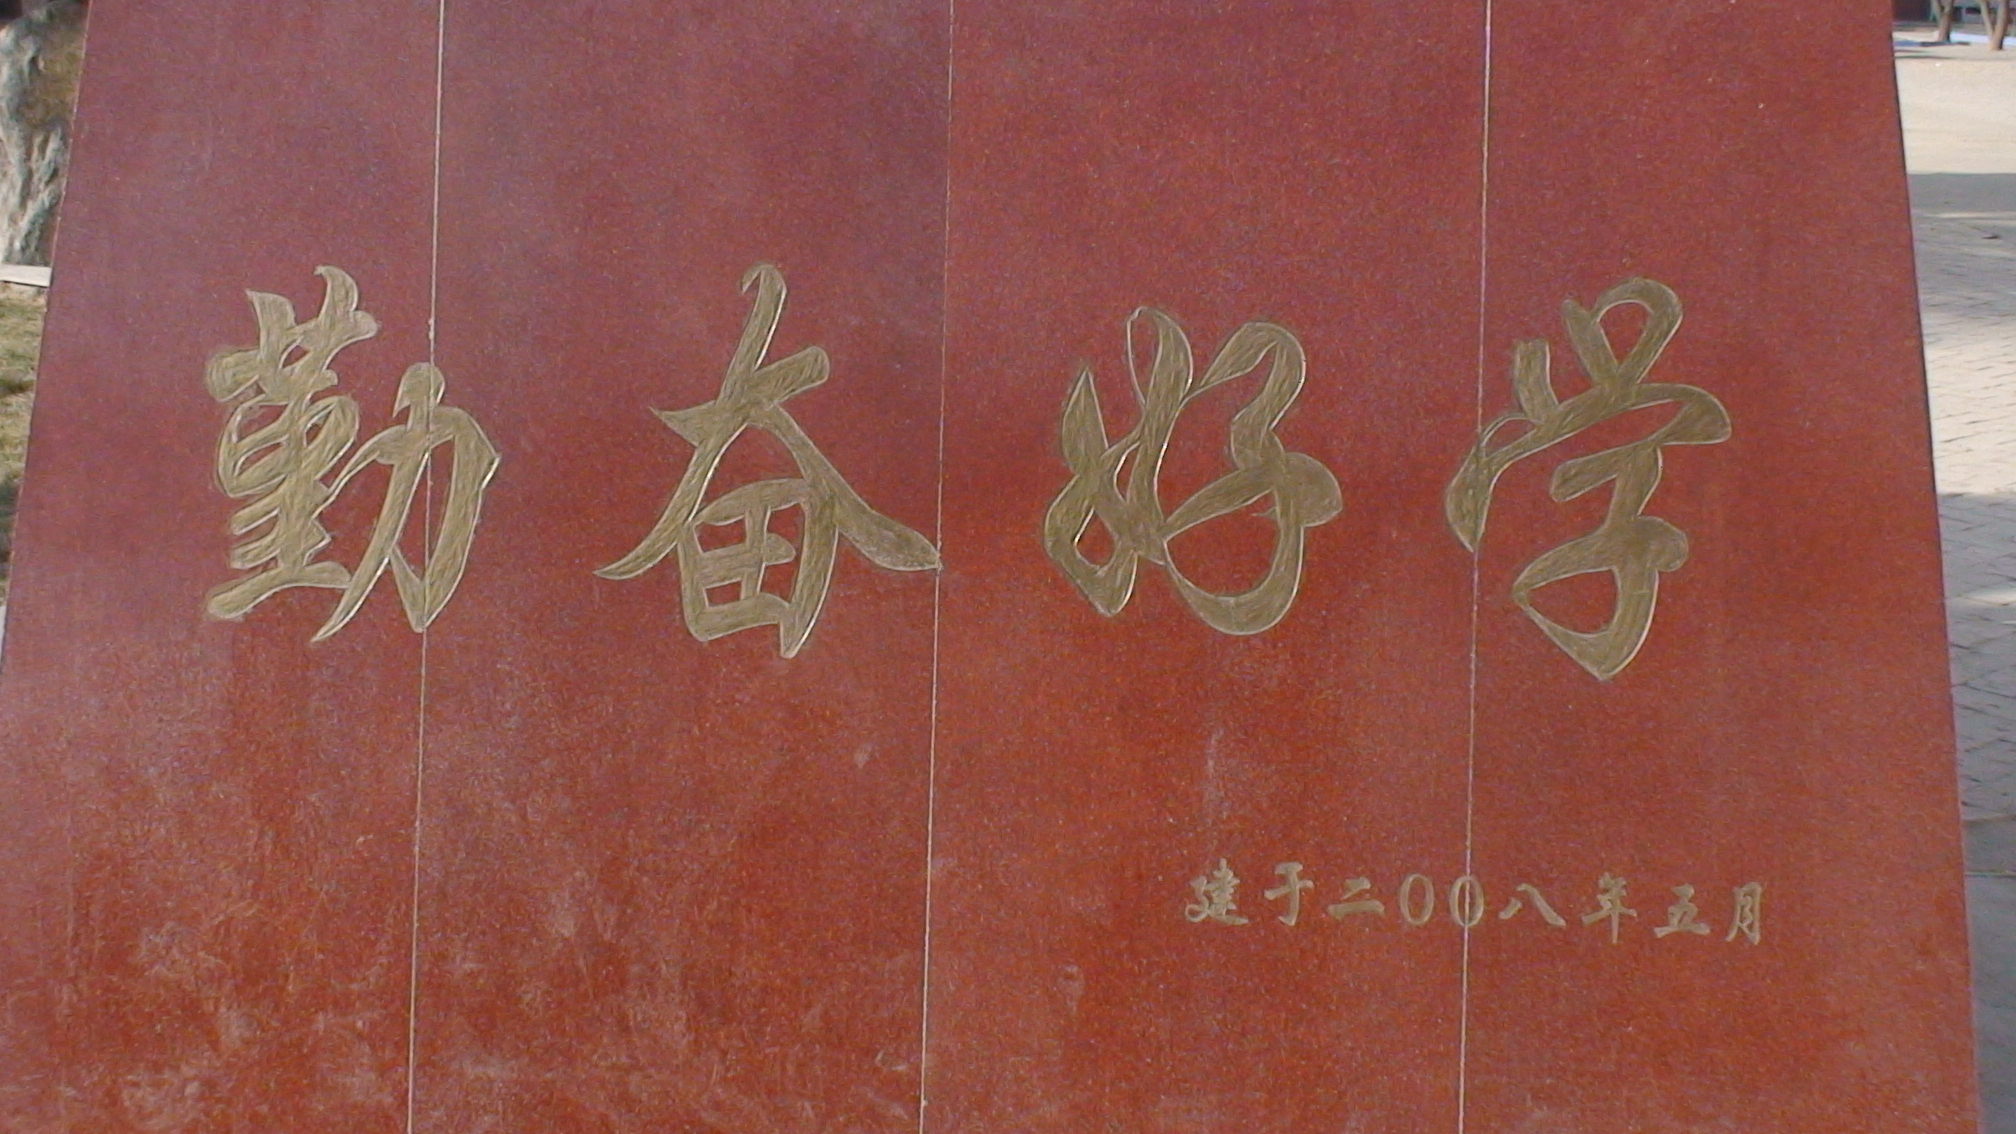 勤奋好学
建于二00八年五月